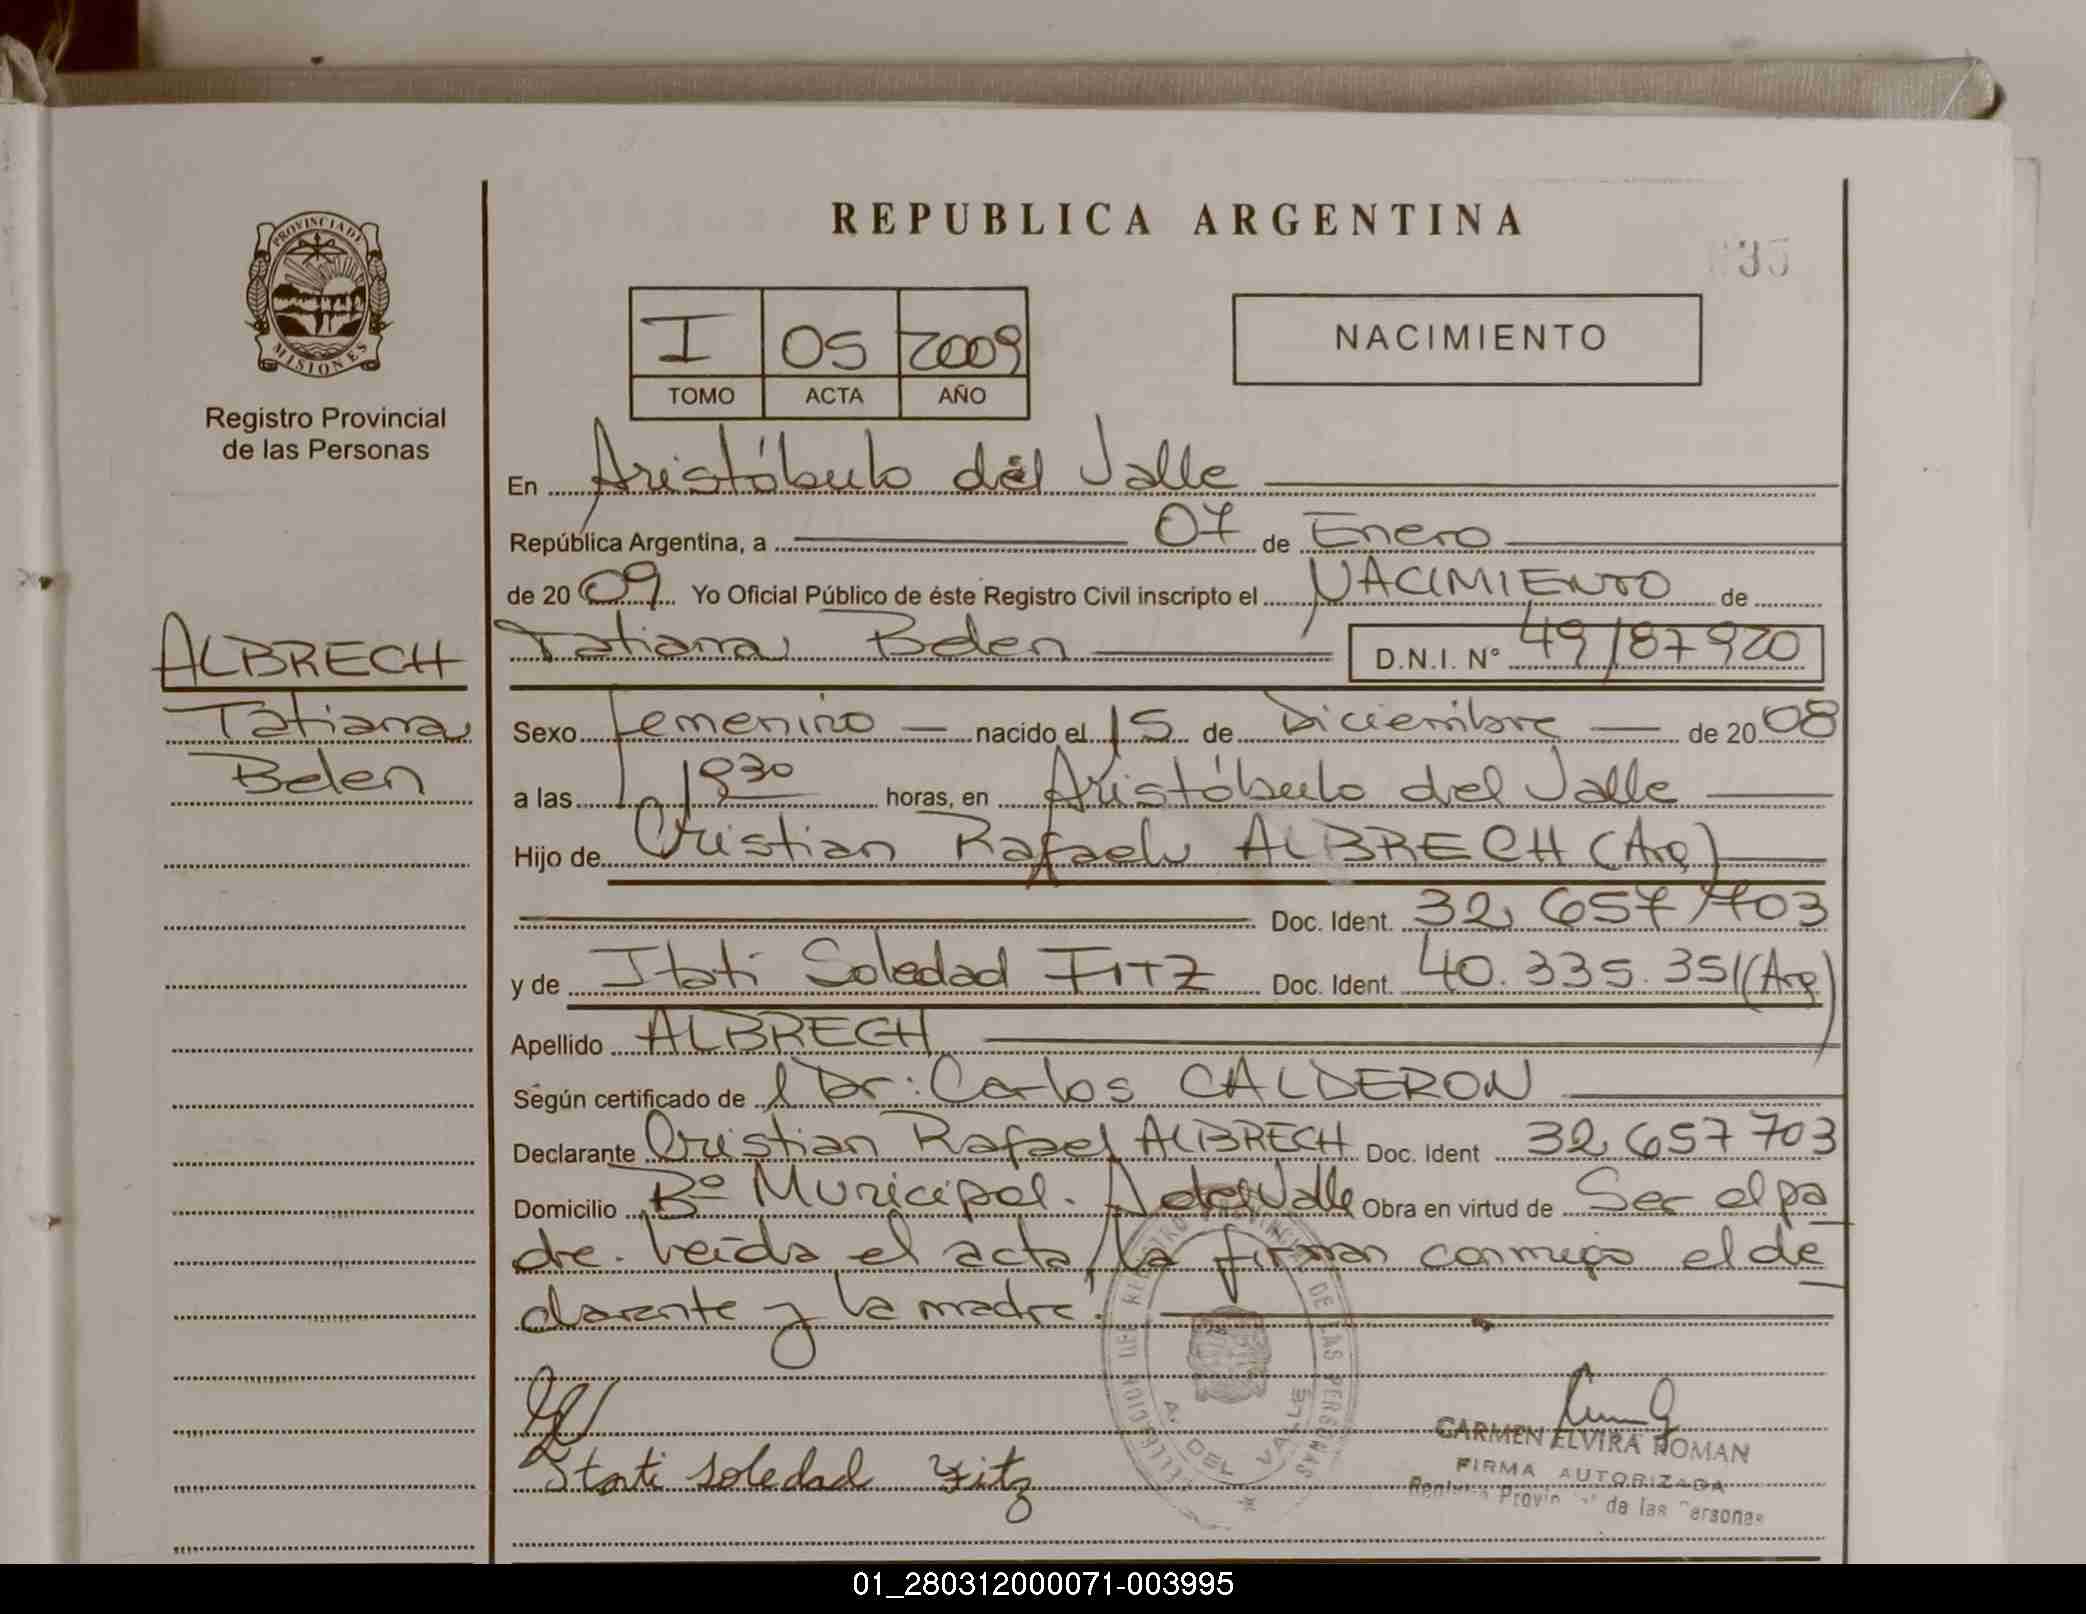 REPUBLICA ARGENTINA
35
PROVINCIA DE
MISIONES
Registro Provincial
de las Personas
I 05 2009
TOMO ACTA AÑO
NACIMIENTO
En Aristóbulo del Valle
República Argentina, a 07 de Enero
de 2009 Yo Oficial Público de éste Registro Civil inscripto el NACIMIENTO de
ALBRECH
Tatiana
Belen
Tatiana Belen D.N.I. N° 49/87920
Sexo femenino nacido el 15 de Diciembre de 2008
a las 1930 horas, en Aristóbulo del Valle
Hijo de Cristian Rafael ALBRECH (Arg)
Doc. Ident. 32.657703
y de Itati Soledad FITZ Doc. Ident. 40.335.351(Arg)
Apellido ALBRECH
Según certificado de l Dr: Carlos CALDERON
Declarante Cristian Rafael ALBRECH Doc. Ident 32.657703
Domicilio Bº Municipal. A del Valle Obra en virtud de Ser el pa
dre. Leída el acta, la firman conmigo el de
clarante y la madre.
Itati Soledad Fitz
DELEGACION DEL REGISTRO PROVINCIAL DE LAS PERSONAS
A. DEL VALLE
CARMEN ELVIRA ROMAN
FIRMA AUTORIZADA
Registro Provincial de las Personas
01_280312000071-003995